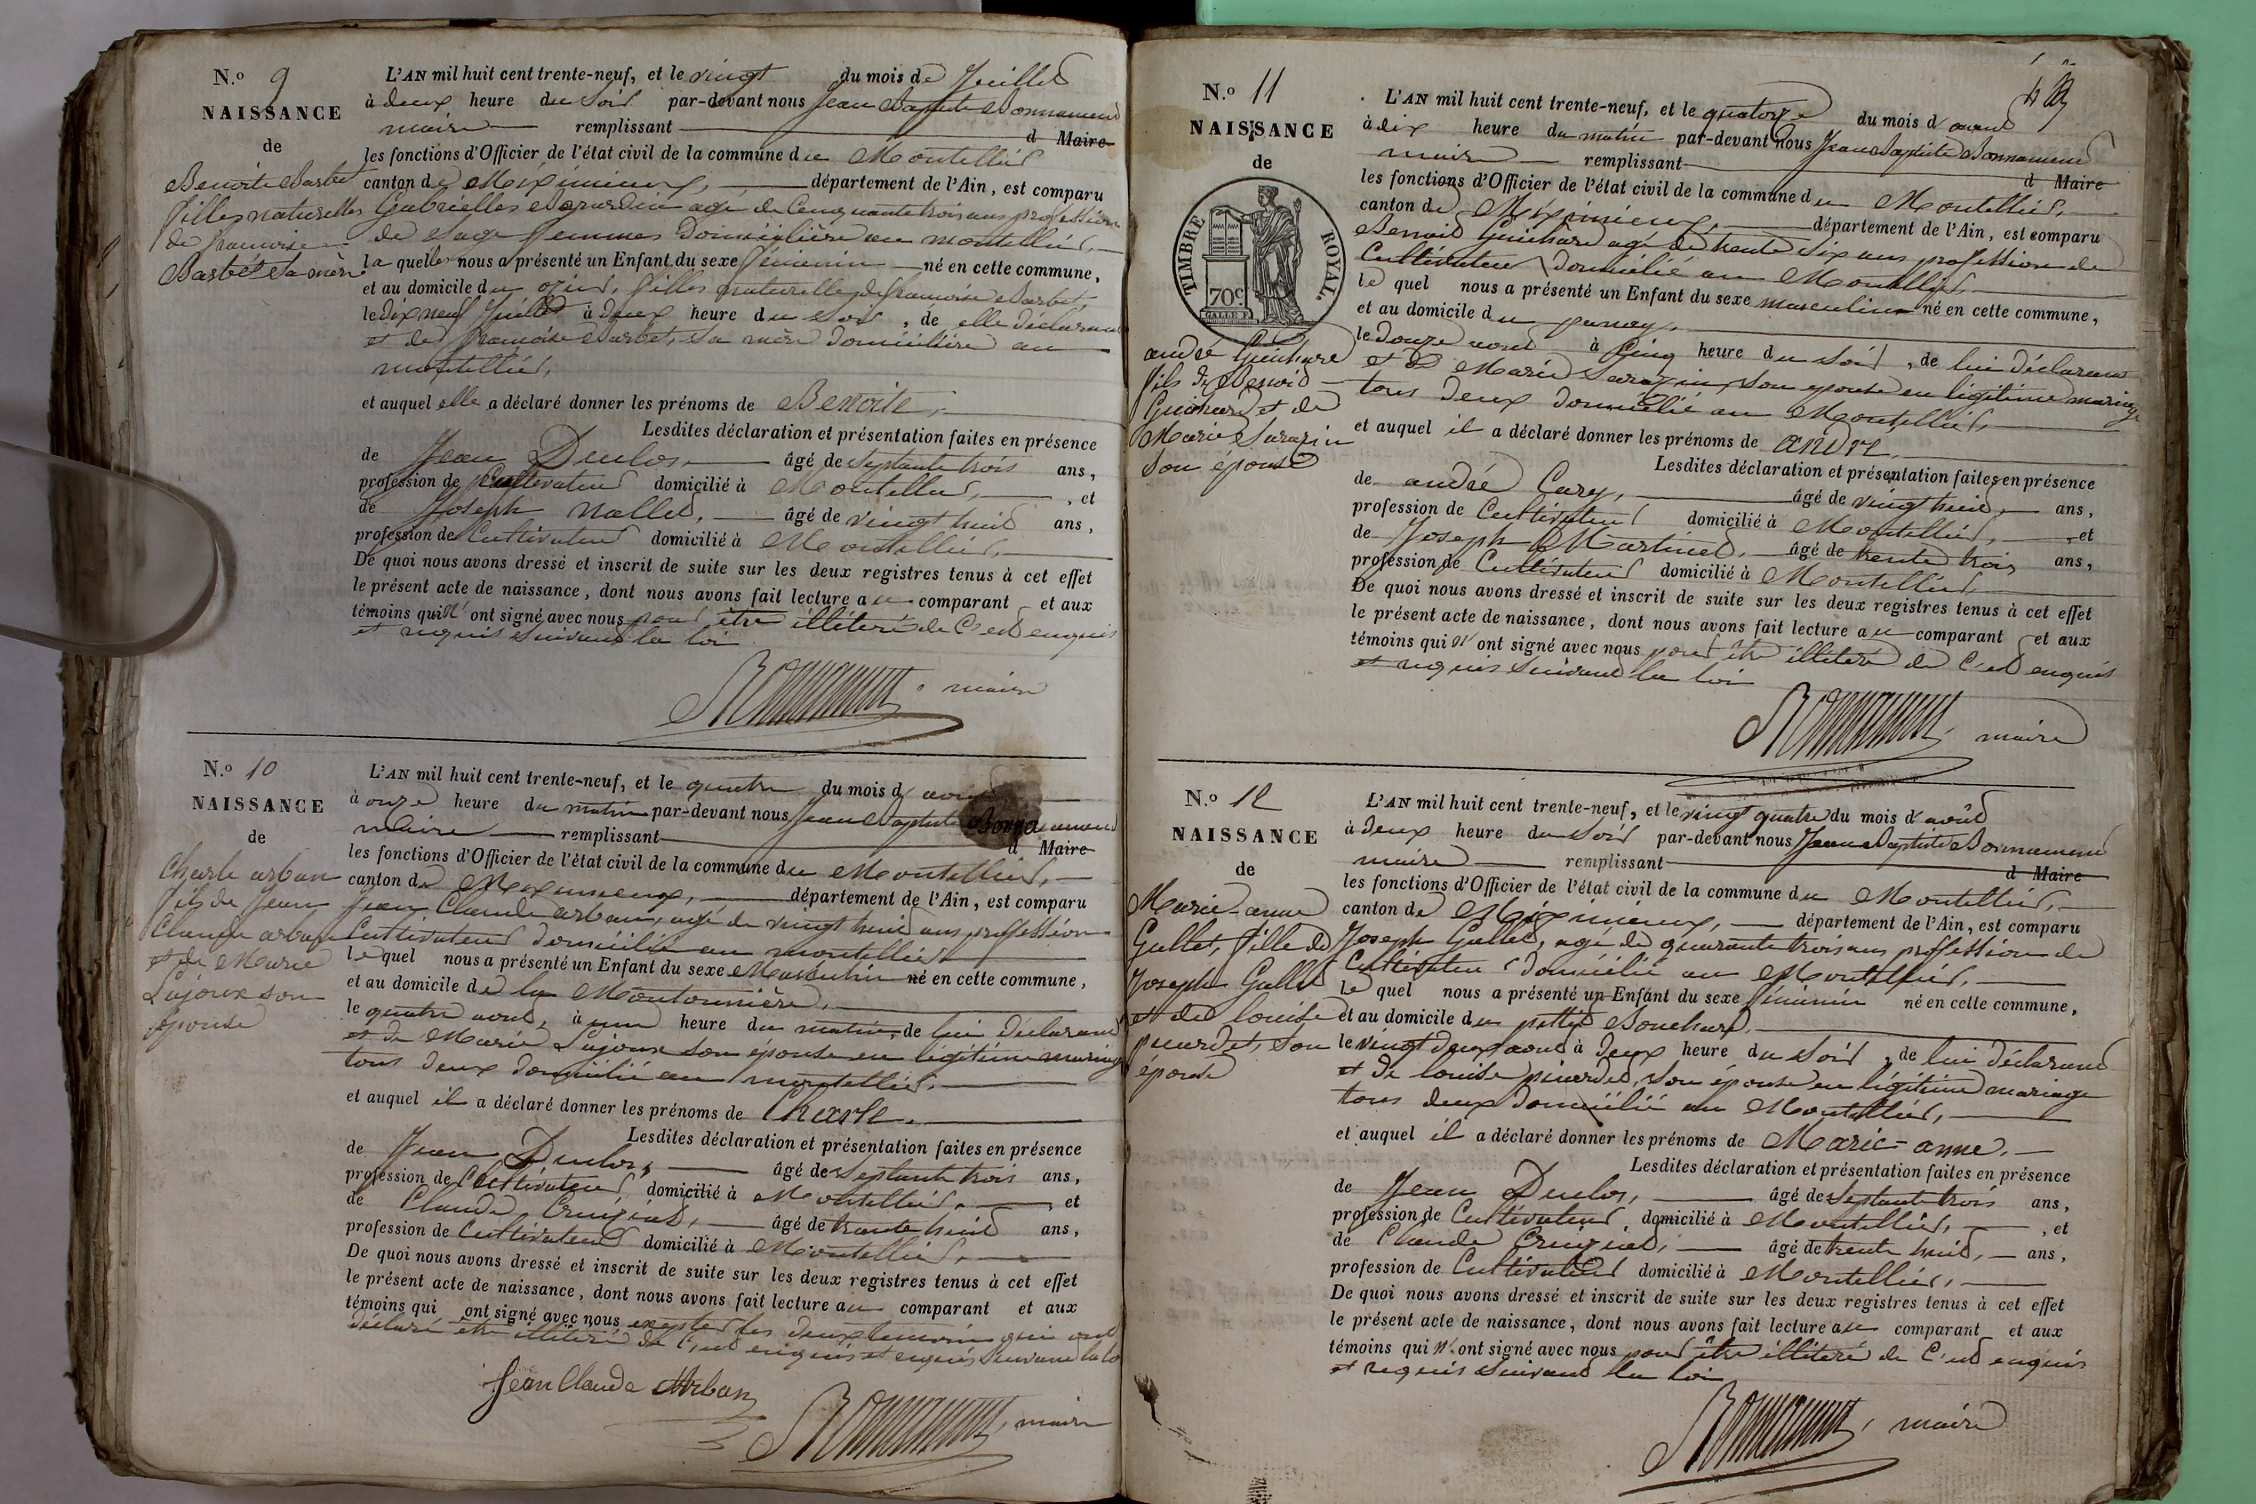 N.o 9
NAISSANCE
de
Benoite Barbet
filles naturelles
de francoise
Barbet sa mère
L'AN mil huit cent trente-neuf, et le vingt du mois de Juillet
à deux heure du Soir par-devant nous Jean Baptiste Bonnamend
maire remplissant d Maire
les fonctions d'Officier de l'état civil de la commune du Montellier
canton de Meximieux, département de l'Ain, est comparu
Gabrielles age de Cenquante trois ans profession
de sage femmes Domicilière au montellier,
la quelle nous a présenté un Enfant du sexe femenin né en cette commune,
et au domicile du filles naturelle de francoise Barbet,
le dix neuf Juillet à deux heure du soir, de elle déclarant
et de francoise Barbet, sa mère domicilière au
montellier,
et auquel elle a déclaré donner les prénoms de Benoite,
Lesdites déclaration et présentation faites en présence
de Jean Duclos, âgé de septante trois ans,
profession de Cultivateur domicilié à Montellier, , et
de Joseph nallet, âgé de vingt huit ans,
profession de Cultivateur domicilié à Montellier,
De quoi nous avons dressé et inscrit de suite sur les deux registres tenus à cet effet
le présent acte de naissance, dont nous avons fait lecture au comparant et aux
témoins qui n'ont signé avec nous pour être illiteré de C'est enquis
et requis suivant la loi
Bonnamend maire
N.o 10
NAISSANCE
de
Charle arban
fils de Jean
Claude arban
et de Marie
Lajoux son
épouse
L'AN mil huit cent trente-neuf, et le quatre du mois d' aout
à onze heure du matin par-devant nous Jean Baptiste Bonnamend
maire remplissant d Maire
les fonctions d'Officier de l'état civil de la commune du Montellier,
canton de Meximieux, département de l'Ain, est comparu
Jean Claude arban, agé de vingt huit ans profession
Cultivateur domicilié au montellier
le quel nous a présenté un Enfant du sexe Masculin né en cette commune,
et au domicile de la Montonnière,
le quatre aout, à une heure du matin, de lui déclarant
et de Marie Lajoux son épouse en légitime mariage
tous deux domicilié au montellier,
et auquel il a déclaré donner les prénoms de Charle,
Lesdites déclaration et présentation faites en présence
de Jean Duclos, âgé de septante trois ans,
profession de Cultivateur domicilié à Montellier, , et
de Claude âgé de trante huit ans,
profession de Cultivateur domicilié à Montellier,
De quoi nous avons dressé et inscrit de suite sur les deux registres tenus à cet effet
le présent acte de naissance, dont nous avons fait lecture au comparant et aux
témoins qui ont signé avec nous les deux temoin qui ont
déclaré être illiteré de C'est enquis et requis suivant la loi
Jean Claude Arban
Bonnamend, maire
N.o 11
NAISSANCE
de
TIMBRE ROYAL.
70c
andré Guichard
fils de Benoid
Guichard et de
Marie Sarazin
son épouse
L'AN mil huit cent trente-neuf, et le quatorze du mois d' aout
à dix heure du matin par-devant nous Jean Baptiste Bonnamend
maire remplissant d Maire
les fonctions d'Officier de l'état civil de la commune du Montellier,
canton de Meximieux, département de l'Ain, est comparu
Benoid Guichard agé de trente six ans profession de
Cultivateur domicilié au Montellier
le quel nous a présenté un Enfant du sexe masculin né en cette commune,
et au domicile du
le douze aout à Cinq heure du soir, de lui déclarant
et de Marie Sarazin, son epouse en légitime mariage
tous deux domicilié au Montellier,
et auquel il a déclaré donner les prénoms de andré,
Lesdites déclaration et présentation faites en présence
de andré Cary, âgé de vingt huit, ans,
profession de Cultivateur domicilié à Montellier, , et
de Joseph Martinet, âgé de trente trois ans,
profession de Cultivateur domicilié à Montellier
De quoi nous avons dressé et inscrit de suite sur les deux registres tenus à cet effet
le présent acte de naissance, dont nous avons fait lecture au comparant et aux
témoins qui n'ont signé avec nous pour être illiteré de C'est enquis
et requis suivant la loi
Bonnamend, maire
N.o 12
NAISSANCE
de
Marie-anne
Gallet, fille de
Joseph Gallet
et de louise
son
épouse
L'AN mil huit cent trente-neuf, et le vingt quatre du mois d'août
à deux heure du soir par-devant nous Jean Baptiste Bonnamend
maire remplissant d Maire
les fonctions d'Officier de l'état civil de la commune du Montellier,
canton de Meximieux, département de l'Ain, est comparu
Joseph Gallet, agé de quarante trois ans profession de
Cultivateur domicilié au Montellier,
le quel nous a présenté un Enfant du sexe féminin né en cette commune,
et au domicile du Bouchard,
le vingt deux aout à deux heure du soir, de lui déclarant
et de louise son épouse en légitime mariage
tous deux domicilié au Montellier,
et auquel il a déclaré donner les prénoms de Marie-anne,
Lesdites déclaration et présentation faites en présence
de Jean Duclos, âgé de septante trois ans,
profession de Cultivateur, domicilié à Montellier, , et
de Claude âgé de trente huit, ans,
profession de Cultivateur domicilié à Montellier,
De quoi nous avons dressé et inscrit de suite sur les deux registres tenus à cet effet
le présent acte de naissance, dont nous avons fait lecture au comparant et aux
témoins qui n'ont signé avec nous pour être illiteré de C'est enquis
et requis suivant la loi
Bonnamend, maire